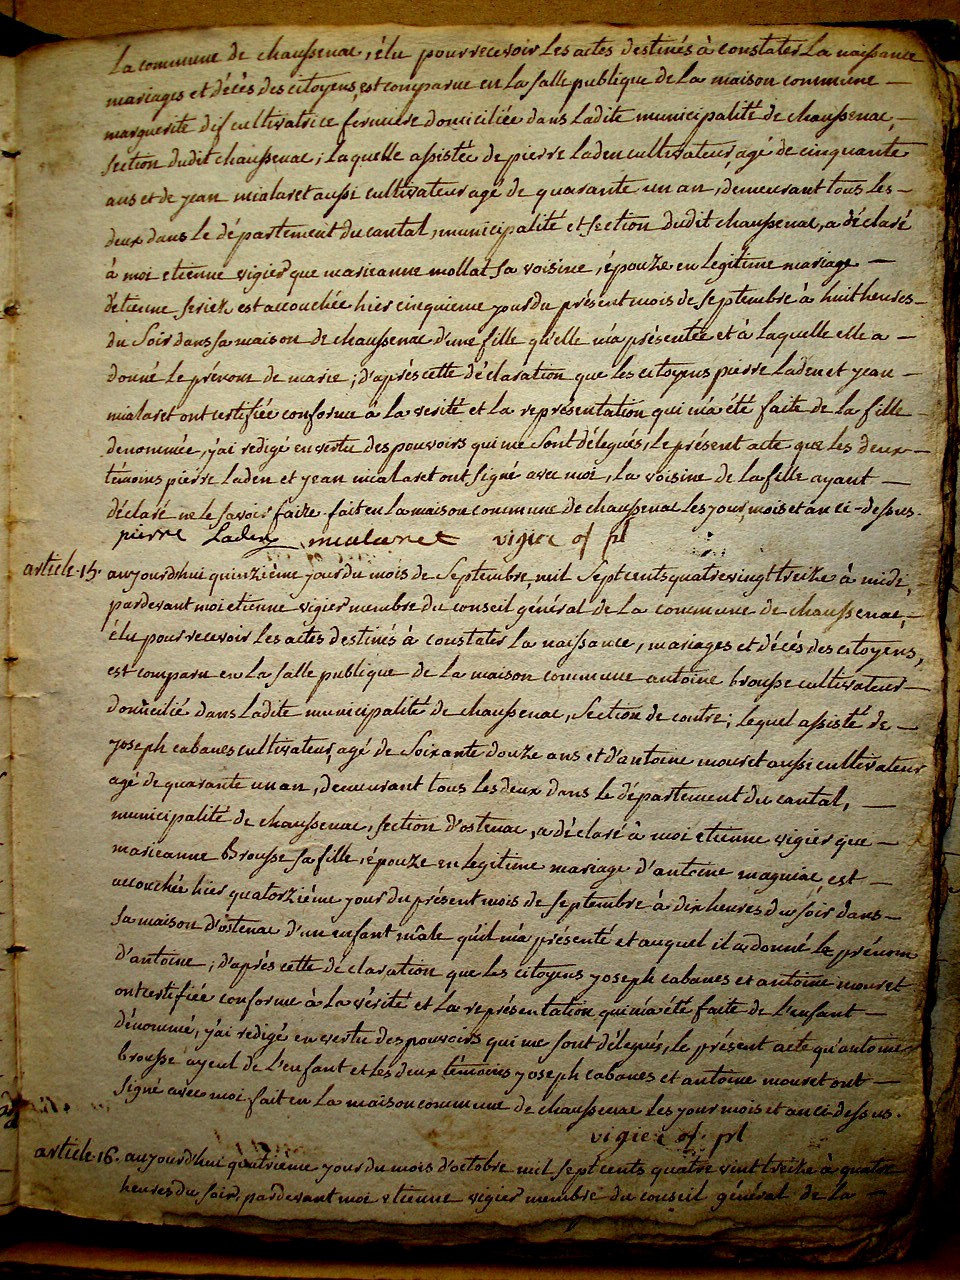 La commune de chaussenac, élu pour recevoir les actes destinés à constater la naissance
mariages et décés des citoyens, est comparue en la salle publique de la maison commune —
marguerite dif cultivatrice fermiere domiciliée dans ladite municipalité de chaussenac, —
section dudit chaussenac; laquelle assistée de pierre Laden cultivateur, agé de cinquante
ans et de jean mialaret aussi cultivateur agé de quarante un an, demeurant tous les —
deux dans le département du cantal, municipalité et section dudit chaussenac, a déclaré
à moi etienne vigier que marieanne mollat sa voisine, épouze en legitime mariage —
d'etienne seriex est accouchée hier cinquieme jour du présent mois de septembre à huit heures —
du soir dans sa maison de chaussenac d'une fille qu'elle m'a présentée et à laquelle elle a —
donné le prénom de marie; d'aprés cette déclaration que les citoyens pierre Laden et jean —
mialaret ont certifiée conforme à la verité et la représentation qui m'a été faite de la fille —
denommée, j'ai redigé en vertu des pouvoirs qui me sont délegués, le présent acte que les deux —
témoins pierre Laden et jean mialaret ont signé avec moi, la voisine de la fille ayant —
déclaré ne le savoir faire. fait en la maison commune de chaussenac les jour, mois et an ci-dessus.
pierre Laden mialaret vigier of. pl
article 15. aujourdhui quinzième jour du mois de septembre, mil sept cents quatre vingt treize à midi,
pardevant moi etienne vigier membre du conseil général de la commune de chaussenac, —
élu pour recevoir les actes destinés à constater la naissance, mariages et décés des citoyens,
est comparu en la salle publique de la maison commune antoine brousse cultivateur —
domicilié dans ladite municipalité de chaussenac, section de contre; lequel assisté de —
joseph cabanes cultivateur, agé de soixante douze ans et d'antoine mouret aussi cultivateur
agé de quarante un an, demeurant tous les deux dans le département du cantal, —
municipalité de chaussenac, section d'ostenac, a déclaré à moi etienne vigier que —
marieanne Brousse sa fille, épouze en legitime mariage d'antoine magniac est —
accouchée hier quatorzième jour du présent mois de septembre à dix heures du soir dans —
sa maison d'ostenac d'un enfant mâle qu'il m'a présenté et auquel il a donné le prénom
d'antoine; d'après cette declaration que les citoyens joseph cabanes et antoine mouret
ont certifiée conforme à la vérité et la représentation qui m'a été faite de l'enfant —
dénommé, j'ai redigé en vertu des pouvoirs qui me sont délegués, le présent acte qu'antoine
brousse ayeul de l'enfant et les deux témoins joseph cabanes et antoine mouret ont —
signé avec moi fait en la maison commune de chaussenac les jour mois et an ci-dessus.
vigier of. pl
article 16. aujourd'hui quatrieme jour du mois d'octobre mil sept cents quatre vint treize à quatre
heures du soir, pardevant moi etienne vigier membre du conseil général de la —